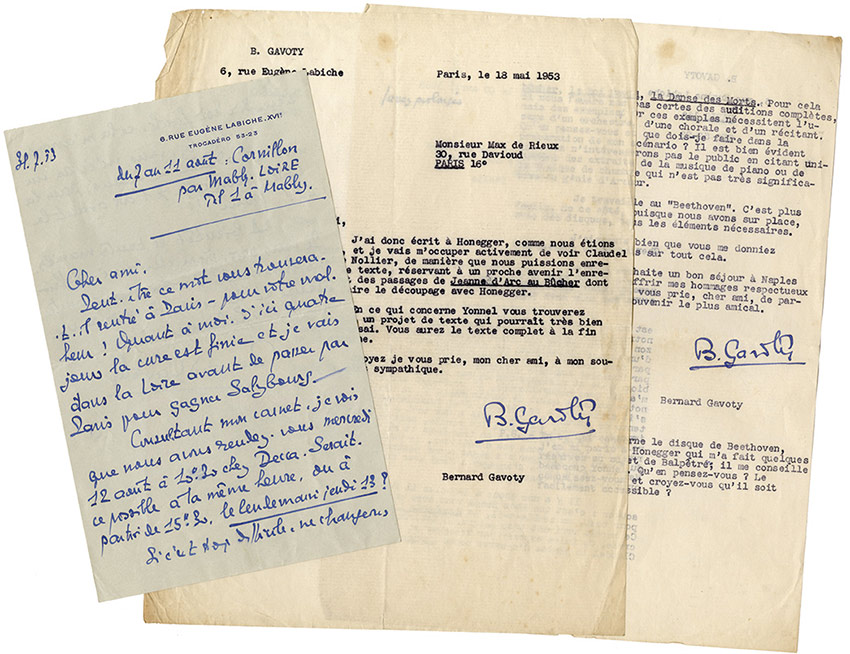 6, RUE EUGÈNE LABICHE, XVIᵉ
TROCADÉRO 53-23
31.7.53
du 7 au 11 août : Cornillon
par Mably. LOIRE
Tél 1 à Mably.
Cher ami.
Peut-être ce mot vous trouvera-
t-il rentré à Paris - pour votre mal-
heur ! Quant à moi, d'ici quatre
jours la cure est finie et je vais
dans la Loire avant de passer par
Paris pour gagner Salzbourg.
Consultant mon carnet, je vois
que nous avons rendez-vous mercredi
12 août à chez Decca. Serait-
ce possible à la même heure, ou à
partir de le lendemain jeudi 13 ?
Si c'est trop difficile, ne changeons
B. GAVOTY
6, rue Eugène Labiche
Paris, le 18 mai 1953
Monsieur Max de Rieux
30, rue Davioud
PARIS 16°
J'ai donc écrit à Honegger, comme nous étions
et je vais m'occuper activement de voir Claudel
Nollier, de manière que nous puissions enre-
e texte, réservant à un proche avenir l'enre-
des passages de Jeanne d'Arc au Bûcher dont
ire le découpage avec Honegger.
n ce qui concerne Yonnel vous trouverez
un projet de texte qui pourrait très bien
sai. Vous aurez le texte complet à la fin
ne.
oyez je vous prie, mon cher ami, à mon sou-
sympathique.
B. Gavoty
Bernard Gavoty
, la Danse des Morts. Pour cela
pas certes des auditions complètes,
r ces exemples nécessitent l'u-
d'une chorale et d'un récitant.
que dois-je faire dans la
cénario ? Il est bien évident
rons pas le public en citant uni-
de la musique de piano ou de
e qui n'est pas très significa-
ur.
ie au "Beethoven". C'est plus
puisque nous avons sur place,
us les éléments nécessaires.
bien que vous me donniez
s sur tout cela.
haite un bon séjour à Naples
ffrir mes hommages respectueux
vous prie, cher ami, de par-
ouvenir le plus amical.
B. Gavoty
Bernard Gavoty
rne le disque de Beethoven,
Honegger qui m'a fait quelques
et de Balpétré; il me conseille
. Qu'en pensez-vous ? Le
et croyez-vous qu'il soit
ossible ?